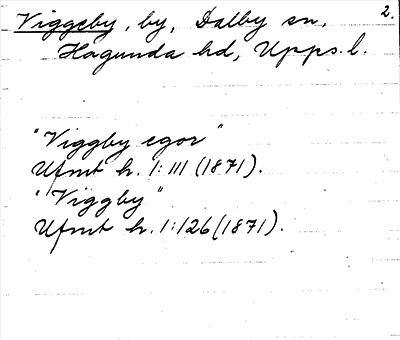 2.
Viggeby, by, Dalby sn,
Hagunda hd, Upps. l.
"Viggby egor"
Ufmt h. 1:111 (1871).
"Viggby"
Ufmt h. 1:126 (1871).